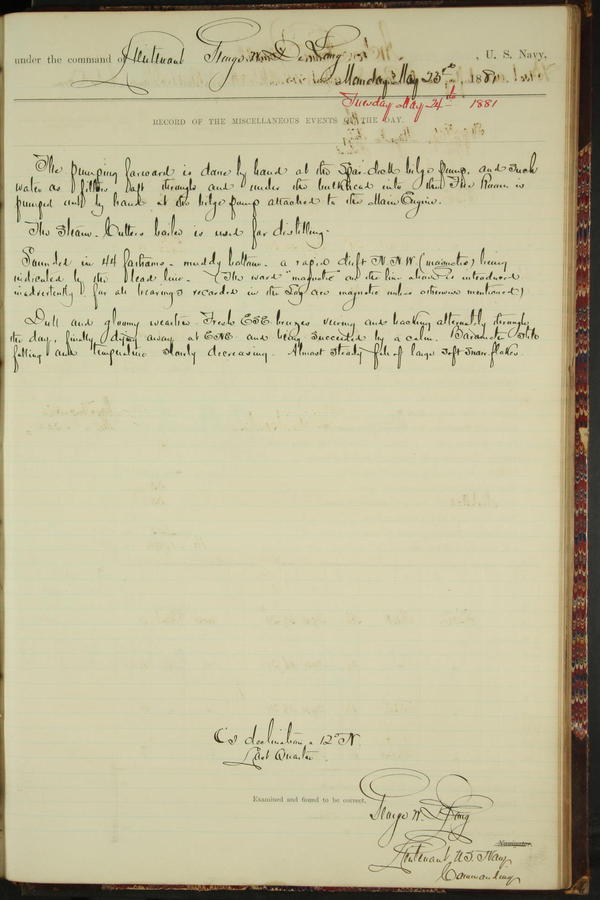 under the command of Lieutenant George W. De Long, U. S. Navy,
Monday May 23rd, 1881
Tuesday May 24th 1881
RECORD OF THE MISCELLANEOUS EVENTS OF THE DAY.
The pumping forward is done by hand at the Spar deck bilge pump, and such
water as filters aft through and under the bulkhead into the Fire Room is
pumped out by hand at the bilge pump attached to the Main Engine.
The Steam Cutter's boiler is used for distilling.
Sounded in 44 fathoms - muddy bottom - a rapid drift N.N.W. (magnetic) being
indicated by the lead line. (The word "magnetic" on the line above is introduced
inadvertently for all bearings recorded in the Log are magnetic unless otherwise mentioned)
Dull and gloomy weather. Fresh ESE breezes veering and backing alternately through
the day, finally dying away at ENE and being succeeded by a calm. Barometer
falling and temperature slowly decreasing. Almost steady fall of large soft snow flakes.
C's declination = 12° N.
Last Quarter
Examined and found to be correct.
George W. De Long
Navigator.
Lieutenant U.S. Navy
Commanding